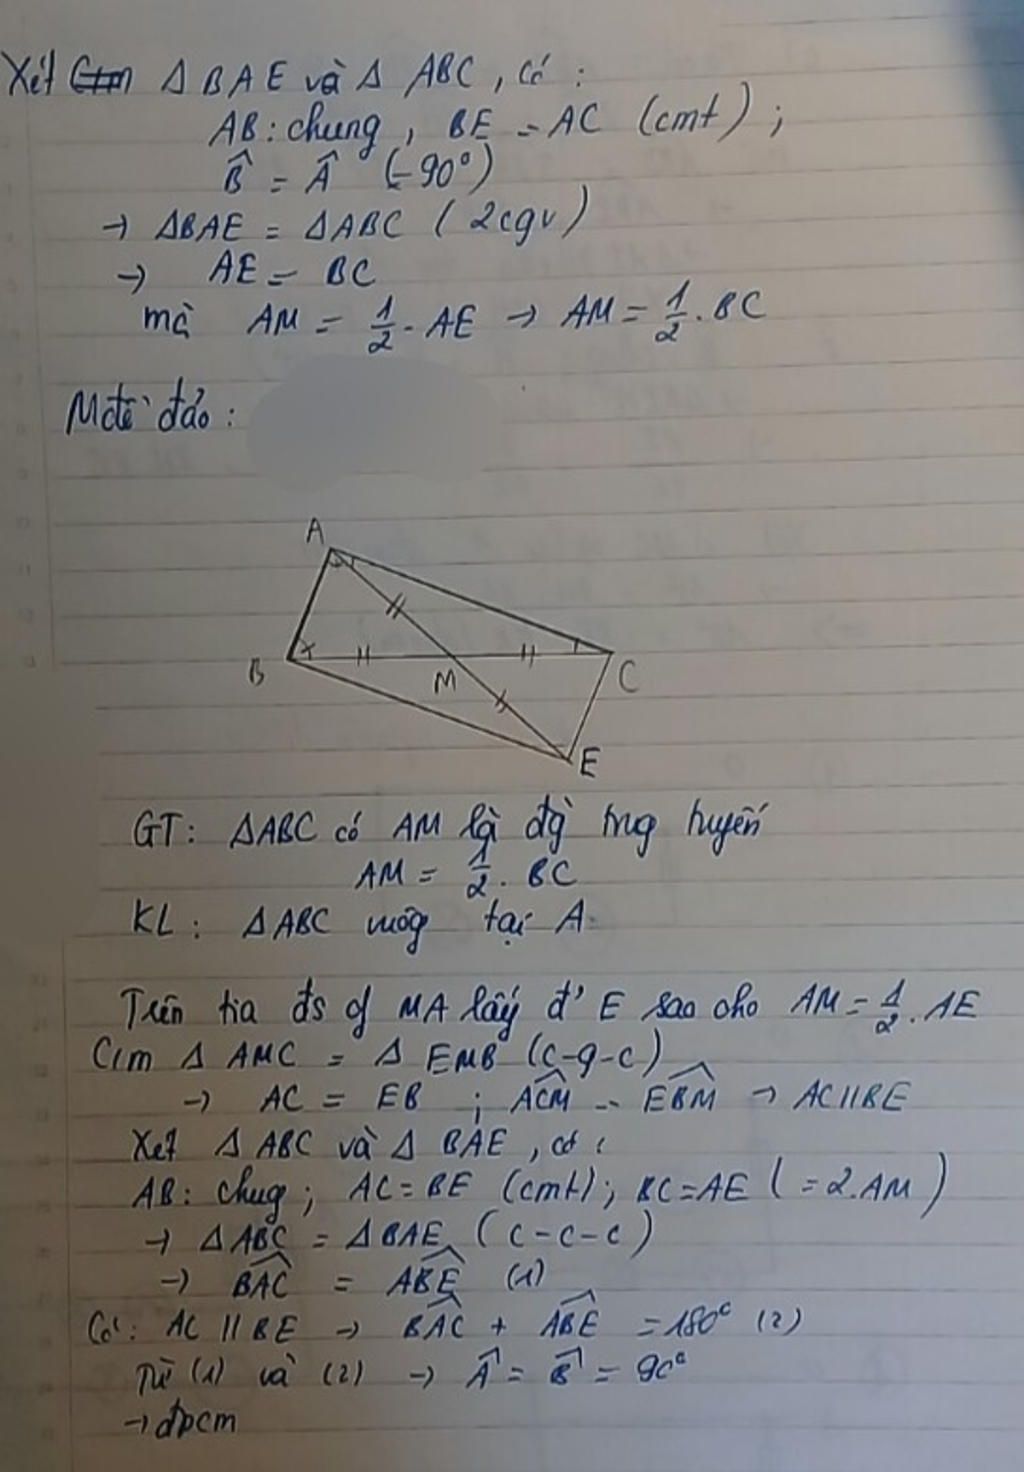 Xét ΔBAE và Δ ABC, có:
AB: chung, BE = AC (cmt);
B̂ = Â (=90°)
→ ΔBAE = ΔABC (2cgv)
→ AE = BC
mà AM = 1/2 . AE → AM = 1/2 . BC
Mđề đảo:
A
B
M
C
E
GT: ΔABC có AM là đg trug tuyến
AM = 1/2 . BC
KL: ΔABC vuôg tại A.
Trên tia đs MA lấy đ' E sao cho AM = 1/2 . AE
C/m Δ AMC = Δ EMB (c-g-c)
→ AC = EB ; ACM^ = EBM^ → AC//BE
Xét Δ ABC và Δ BAE, có:
AB: chug; AC = BE (cmt); BC = AE (= 2.AM)
→ ΔABC = ΔBAE (c-c-c)
→ BAC^ = ABE^ (1)
Có: AC // BE → BAC^ + ABE^ = 180° (2)
Từ (1) và (2) → Â = B̂ = 90°
→ đpcm